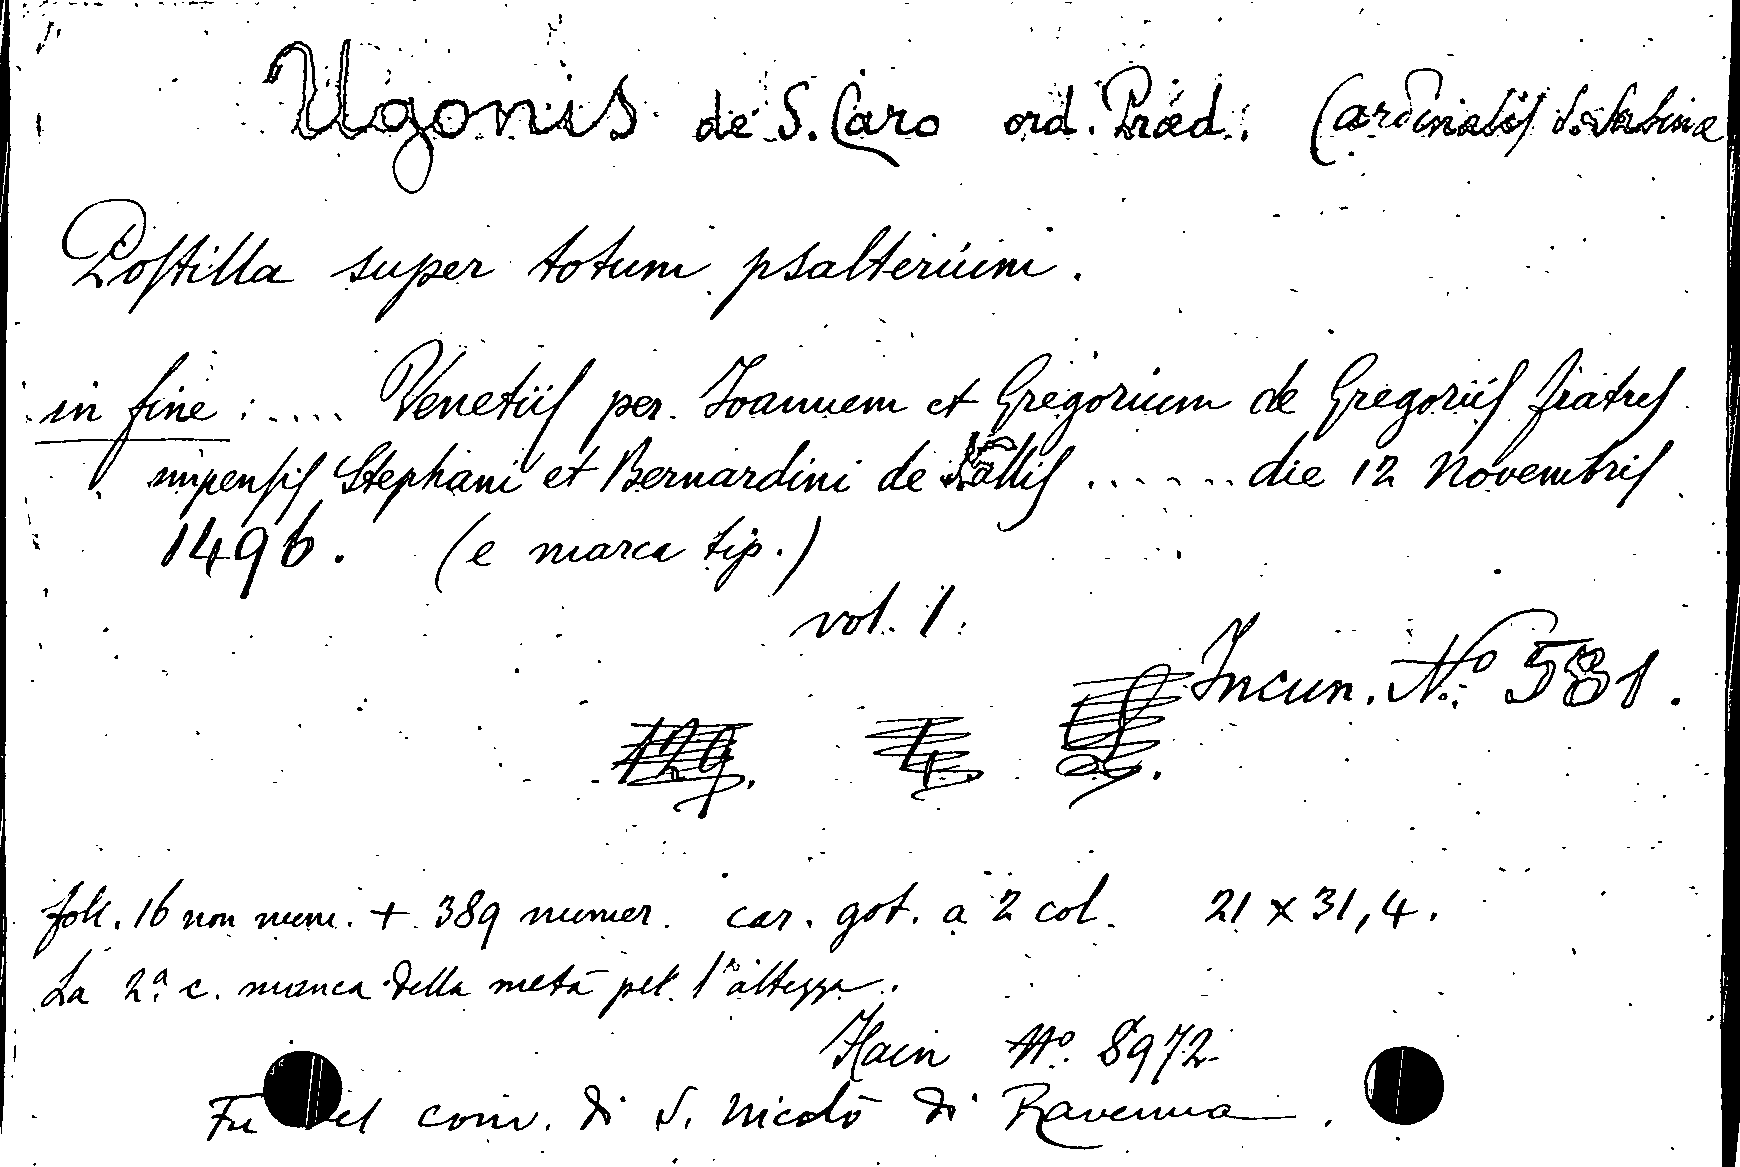 Ugonis de S. Caro ord. Præd. Cardinalis S. Sabinæ
Postilla super totum psalterium.
in fine : .... Venetiis per Joannem et Gregorium de Gregoriis fratres
impensis Stephani et Bernardini de Nallis ...... die 12 Novembris
1496. (e marca tip.)
vol. 1.
Incun. Nº 581.
129. 4.
foll. 16 non num. + 389 numer. car. got. a 2 col. 21 x 31,4.
La 2ª c. manca della metà pel l'altezza.
Hain Nº 8972
Fu del conv. di S. Nicolò di Ravenna.